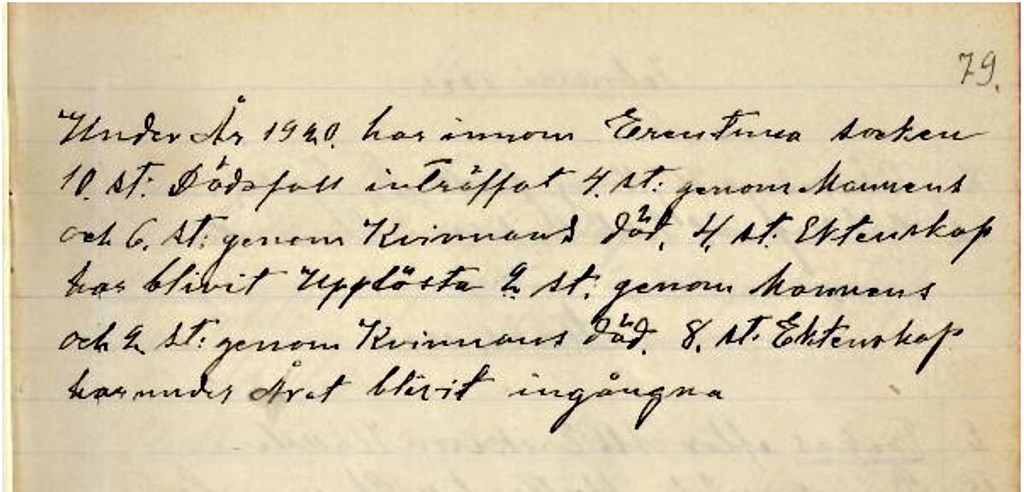 79.
Under År 1920. har innom Erentuna socken
10. st: Dödsfall inträffat 4. st: genom Mannens
och 6. st: genom Kvinnans död. 4. st. Ektenskap
har blivit Upplösta 2 st: genom Mannens
och 2 st: genom Kvinnans död. 8. st. Ektenskap
har under Året blivit ingångna